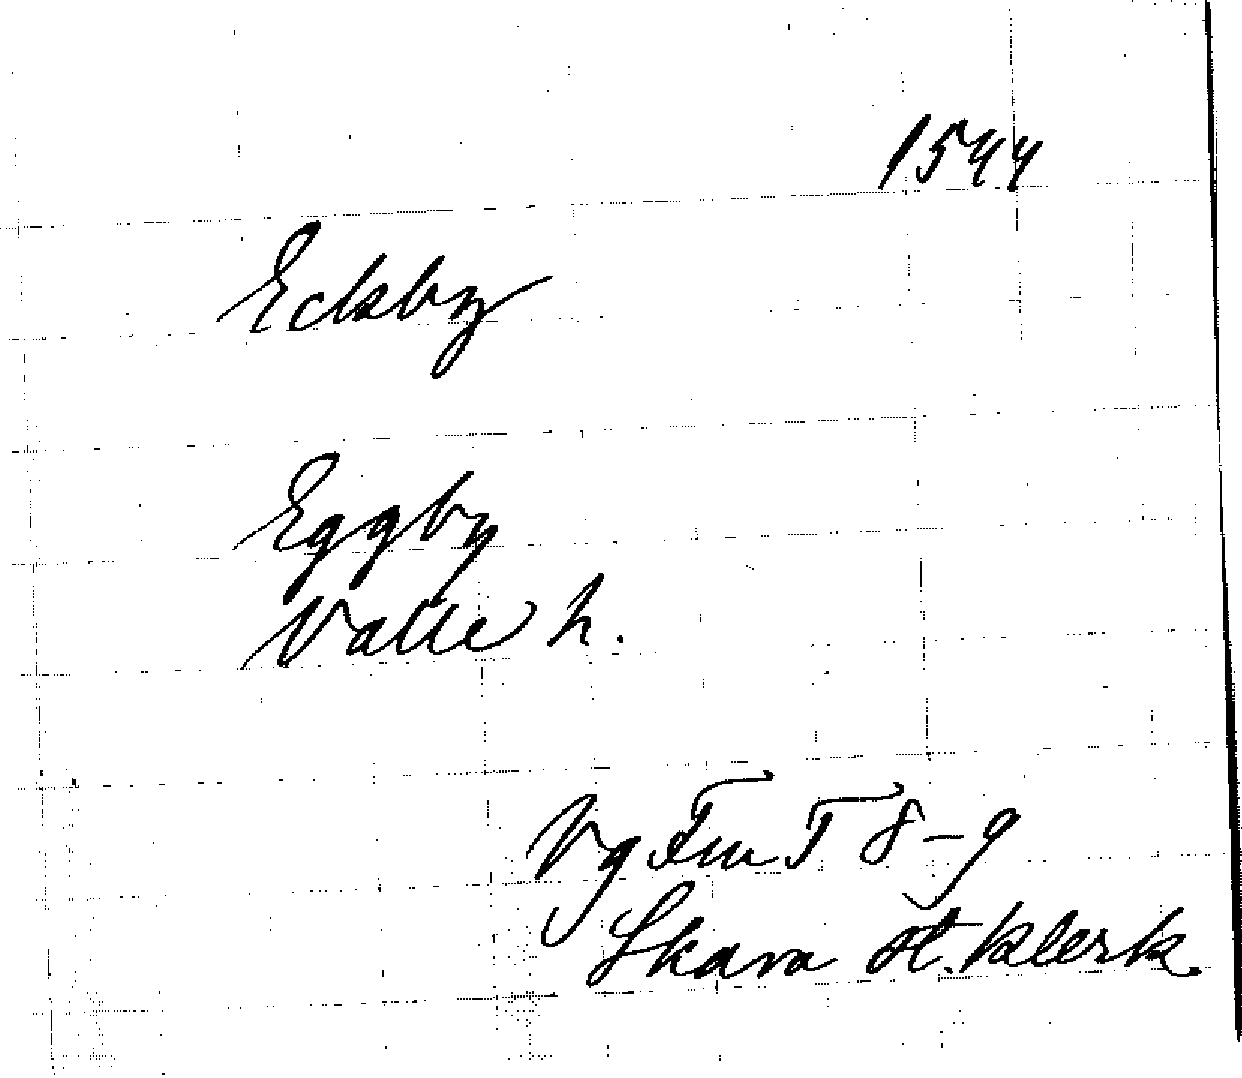 1544
Eckby
Eggby
Valle h.
Vg Fm T 8-9
Skara st. klerk.